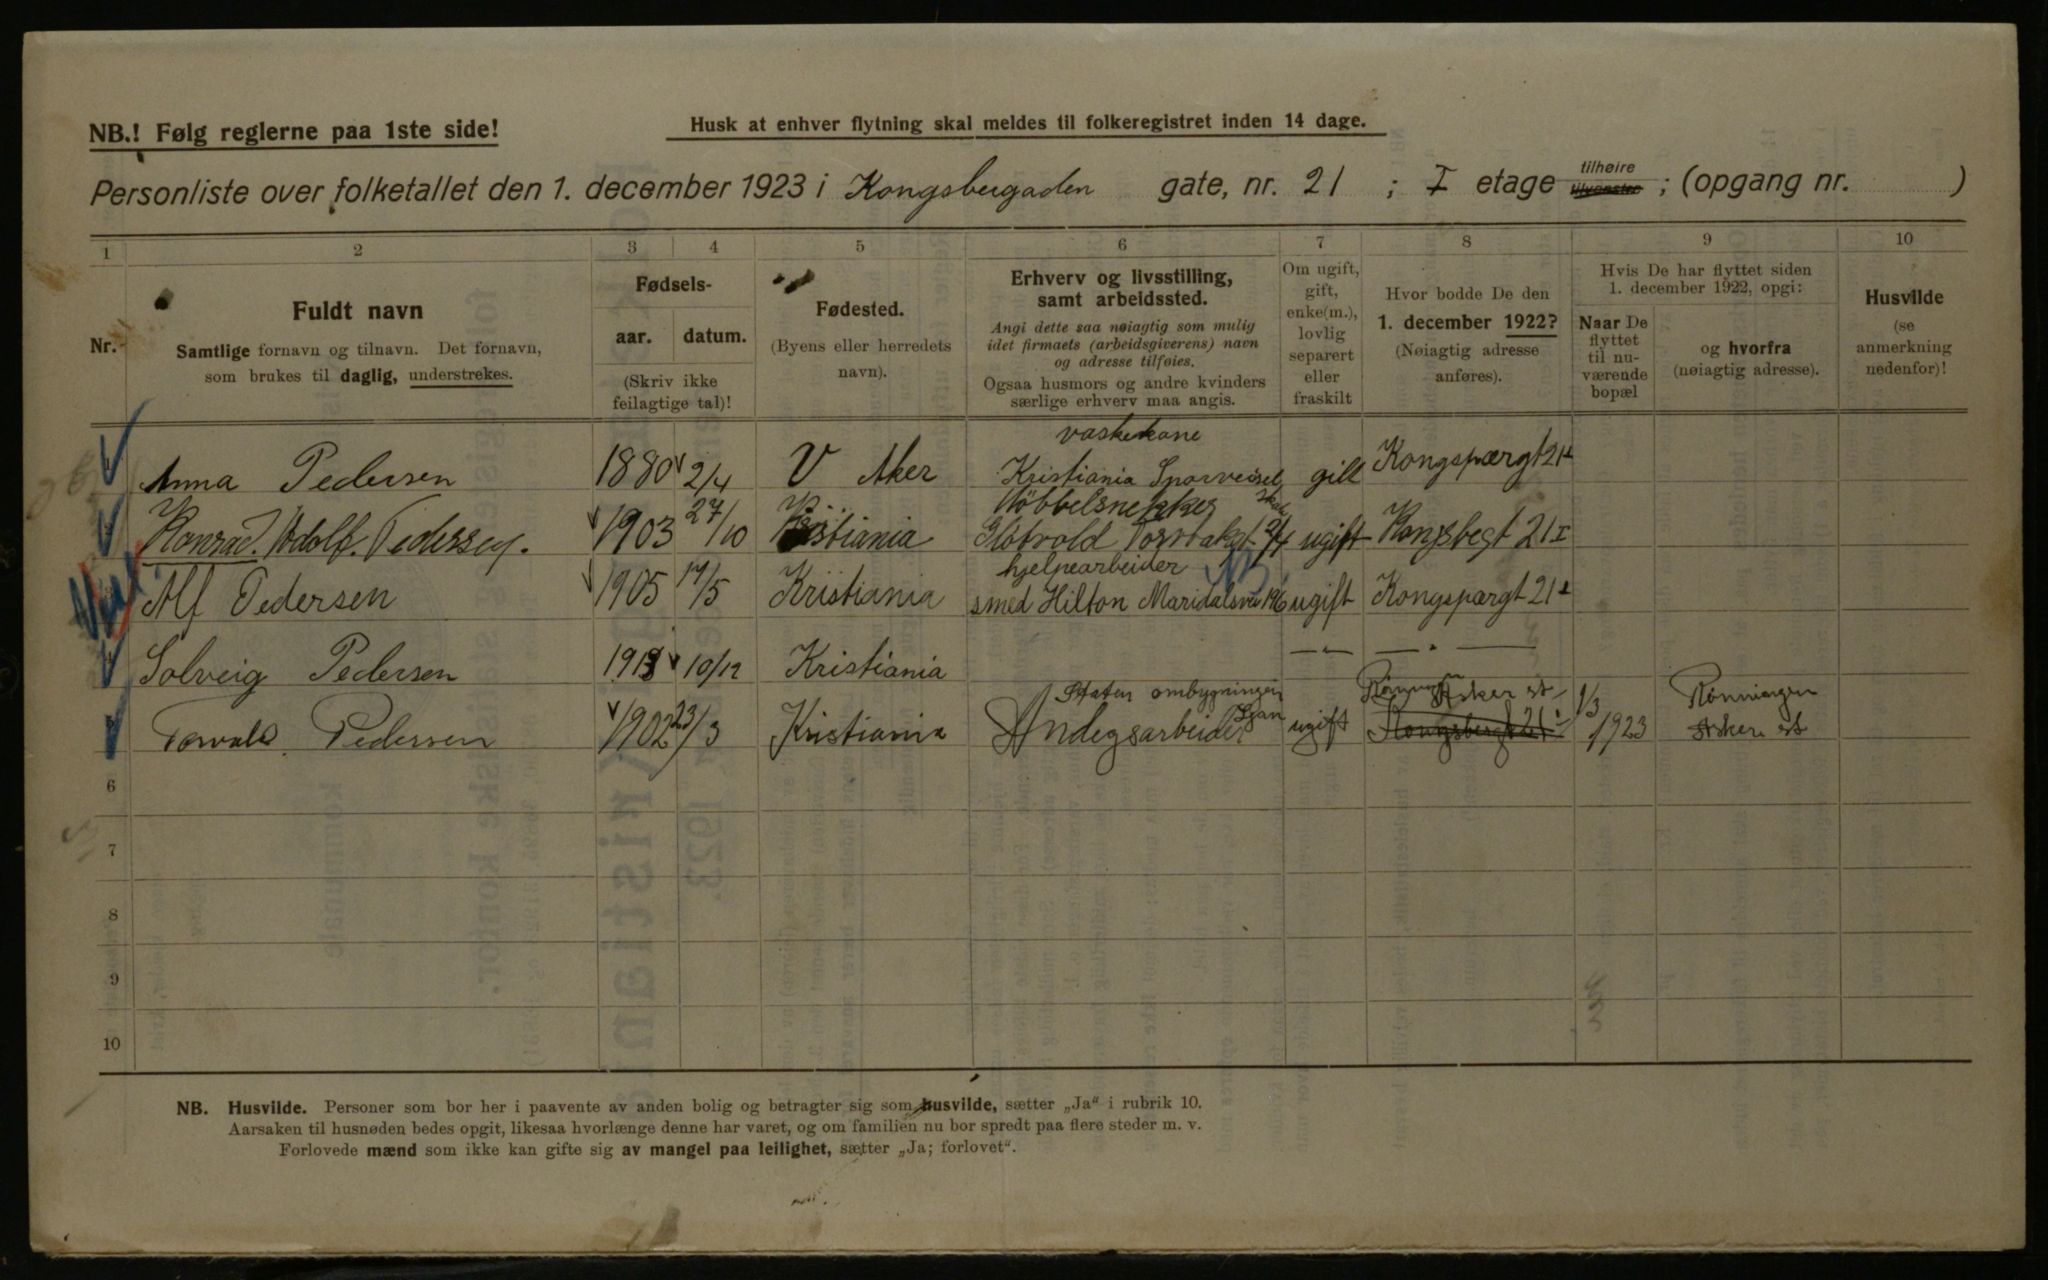 NB.! Følg reglerne paa 1ste side!
Husk at enhver flytning skal meldes til folkeregistret inden 14 dage.
Personliste over folketallet den 1. december 1923 i Kongsbergaden gate, nr. 21 ; I etage tilhøire tilvenstre ; (opgang nr. )
1 2 3 4 5 6 7 8 9 10
Nr.
Fuldt navn
Samtlige fornavn og tilnavn. Det fornavn,
som brukes til daglig, understrekes.
Fødsels-
aar. datum.
(Skriv ikke
feilagtige tal)!
Fødested.
(Byens eller herredets
navn).
Erhverv og livsstilling,
samt arbeidssted.
Angi dette saa nøiagtig som mulig
idet firmaets (arbeidsgiverens) navn
og adresse tilføies.
Ogsaa husmors og andre kvinders
særlige erhverv maa angis.
Om ugift,
gift,
enke(m.),
lovlig
separert
eller
fraskilt
Hvor bodde De den
1. december 1922?
(Nøiagtig adresse
anføres).
Hvis De har flyttet siden
1. december 1922, opgi:
Naar De
flyttet
til nu-
værende
bopæl
og hvorfra
(nøiagtig adresse).
Husvilde
(se
anmerkning
nedenfor)!
vaskekone
Anna Pedersen 1880 2/4 V Aker Kristiania Sporveisel skab gill Kongspærgt 21 I
Möbbelsnekker
Konrad. Adolf. Pedersen. 1903 27/10 Kristiania ugift Kongsbegt 21 I
hjelpearbeider
Alf Pedersen 1905 17/5 Kristiania smed Hilton Maridalsvei 196 ugift Kongspærgt 21 I
Solveig Pedersen 10/12 Kristiania — „ — — „ —
Staten ombygningen Asker st
Torvald Pedersen 1902 23/3 Kristiania Andegsarbeider ugift Kongsbergt 21 I 1/3 1923 Rønningen
Asker st
6
7
8
9
10
NB. Husvilde. Personer som bor her i paavente av anden bolig og betragter sig som husvilde, sætter „Ja“ i rubrik 10.
Aarsaken til husnøden bedes opgit, likesaa hvorlænge denne har varet, og om familien nu bor spredt paa flere steder m. v.
Forlovede mænd som ikke kan gifte sig av mangel paa leilighet, sætter „Ja; forlovet“.